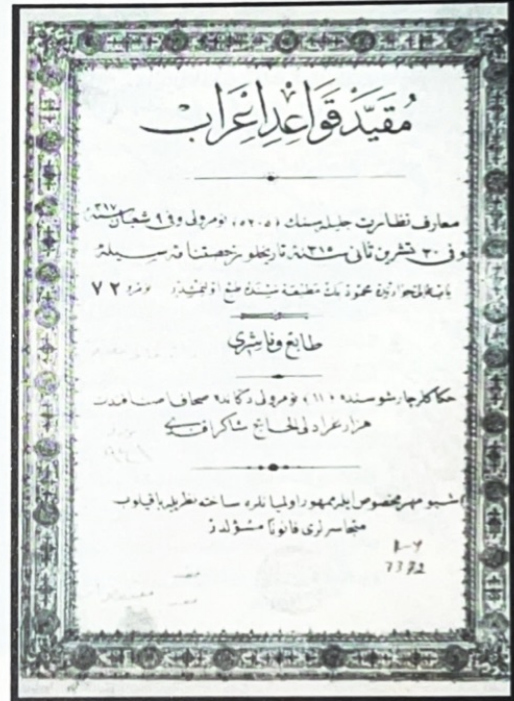 مُقَيَّدْ قَوَاعِدِ اِعْرَابْ
معارف نظارت جلیله سنك (٥٢٠٥) نومرولی و فی ٩ شعبان سنه ٣١٧
و فی ٣٠ تشرین ثانی سنه ٣١٥ تاریخلو رخصتنامه سیله
باب عالی جوارنده محمود بك مطبعه سنده طبع اولنمشدر نومرو ٧٢
طابع و ناشری
حكاكلر چارشوسنده (١١) نومرولی دكانده صحاف اصنافندن
هزارغرادلی الحاج شاكر افندی
اشبو مهر مخصوص ایله ممهور اولمیانلره ساخته نظریله باقیلوب
متجاسرلری قانونًا مسؤلدر
7372